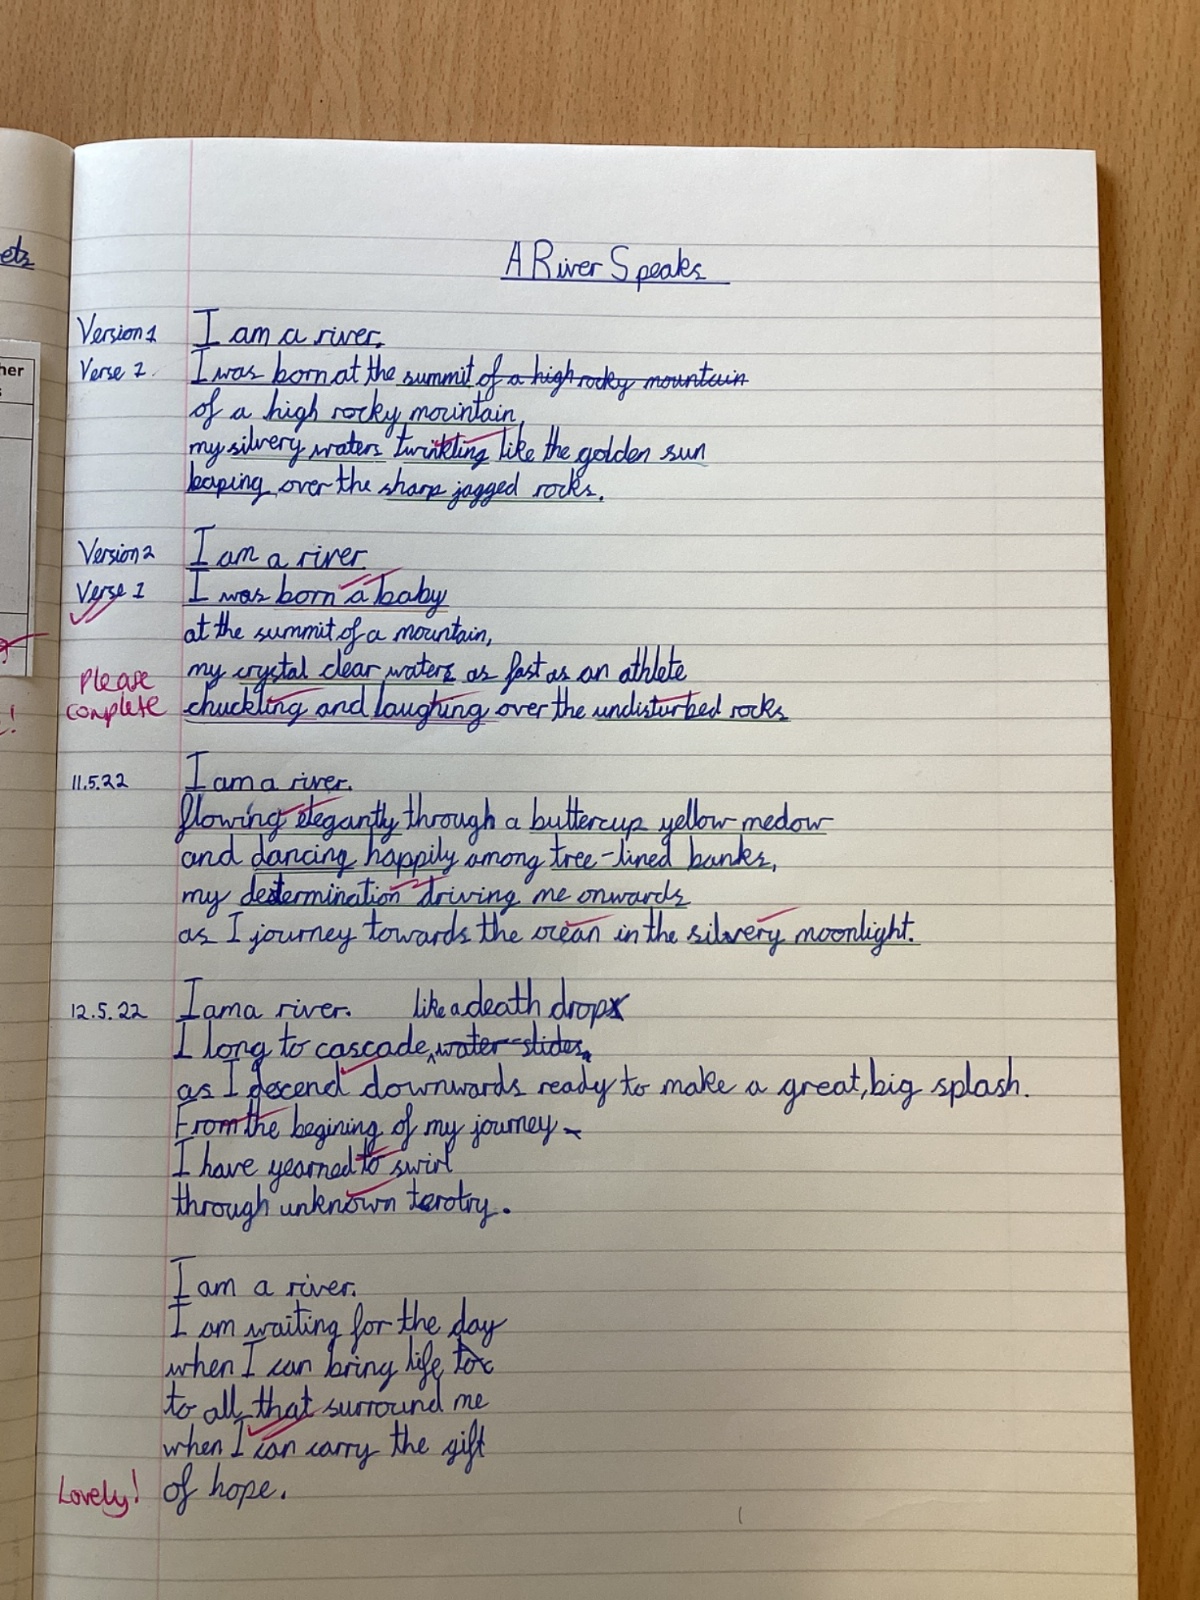 A River Speaks
ets
her
s
Version 1
I am a river.
Verse 1.
I was born at the summit of a high rocky mountain
of a high rocky mountain,
my silvery waters twinkling like the golden sun
leaping over the sharp jagged rocks.
Version 2
I am a river.
Verse 1
I was born a baby
at the summit of a mountain,
my crystal clear waters as fast as an athlete
Please
complete
chuckling and laughing over the undisturbed rocks
11.5.22
I am a river.
flowing elegantly through a buttercup yellow medow
and dancing happily among tree-lined banks,
my determination driving me onwards
as I journey towards the ocean in the silvery moonlight.
12.5.22
I am a river.
like a death drop
I long to cascade, water-slides,
as I decend downwards ready to make a great, big splash.
From the begining of my journey
I have yearned to swirl
through unknown terotry.
I am a river.
I am waiting for the day
when I can bring life to
to all that surround me
when I can carry the gift
Lovely!
of hope.